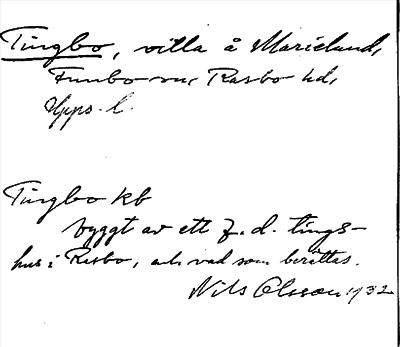 Tingbo, villa å Marielund,
Funbo sn, Rasbo hd,
Upps. l.
Tingbo kb
byggt av ett f. d. tings-
hus i Rasbo, och vad som berättas.
Nils Olsson 1932